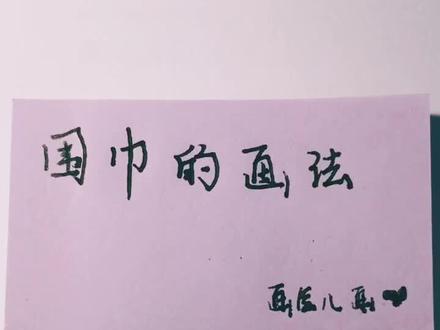 围巾的画法
画儿画